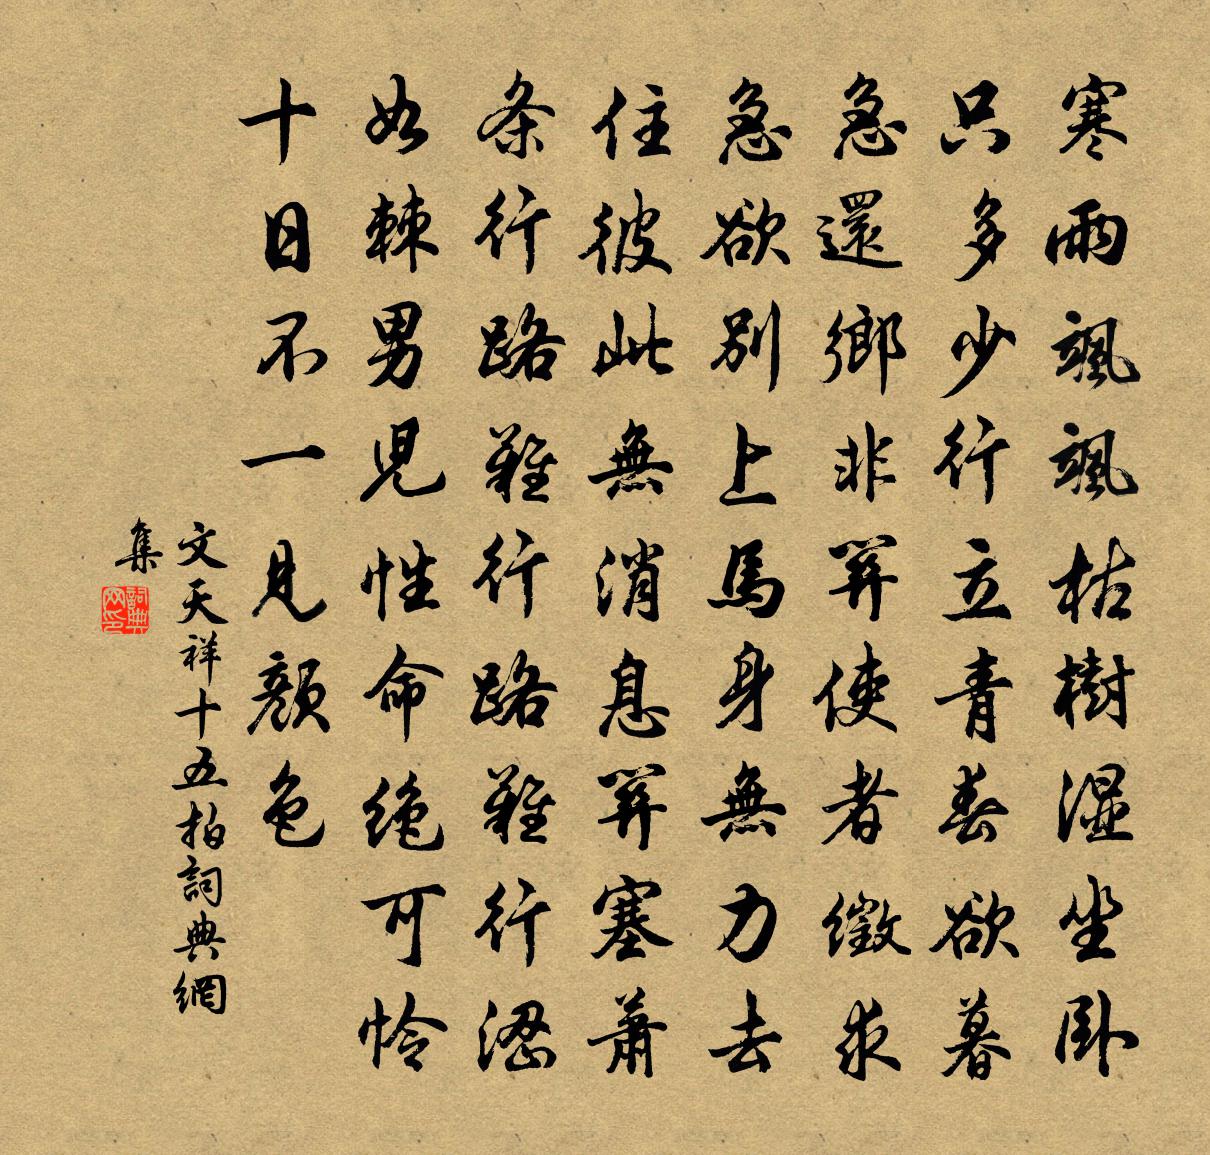 寒雨颯颯枯樹湿坐卧
只多少行立青春欲暮
急還鄉非關使者徵求
急欲別上馬身無力去
住彼此無消息關塞蕭
条行路難行路難行澀
如棘男兒性命絕可怜
十日不一見顏色
文天祥十五拍詞典網
集
詞典网印